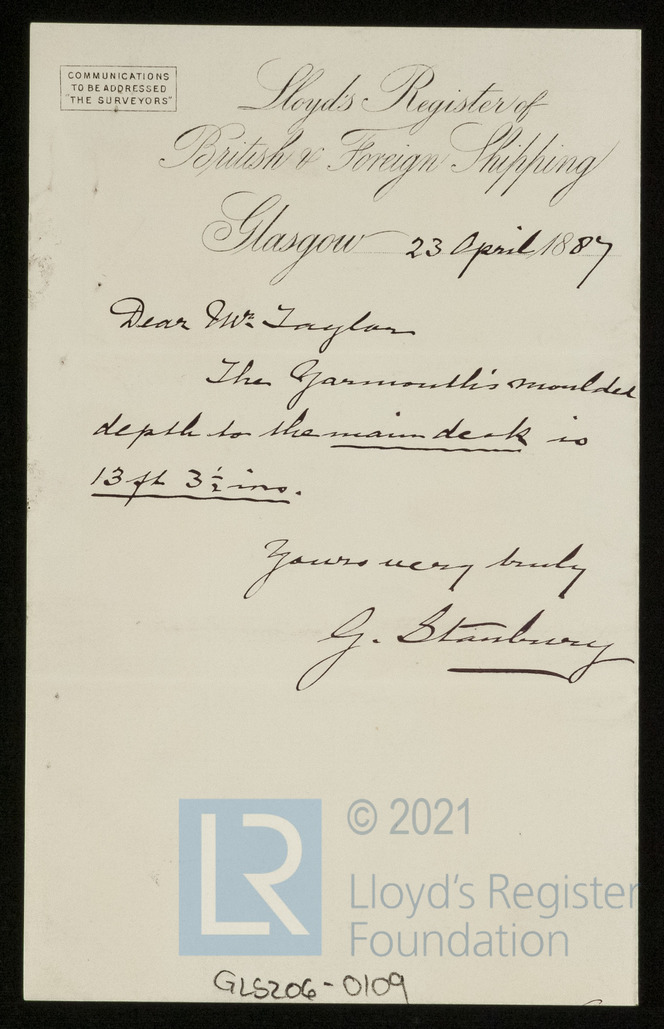 COMMUNICATIONS
TO BE ADDRESSED
"THE SURVEYORS"
Lloyd's Register of
British & Foreign Shipping
Glasgow 23 April 1887
Dear Mr. Taylor
The Yarmouth's moulded
depth to the main deck is
13 ft 3½ ins.
Yours very truly
G. Stanbury
LR
© 2021
Lloyd's Register
Foundation
GLS206-0109